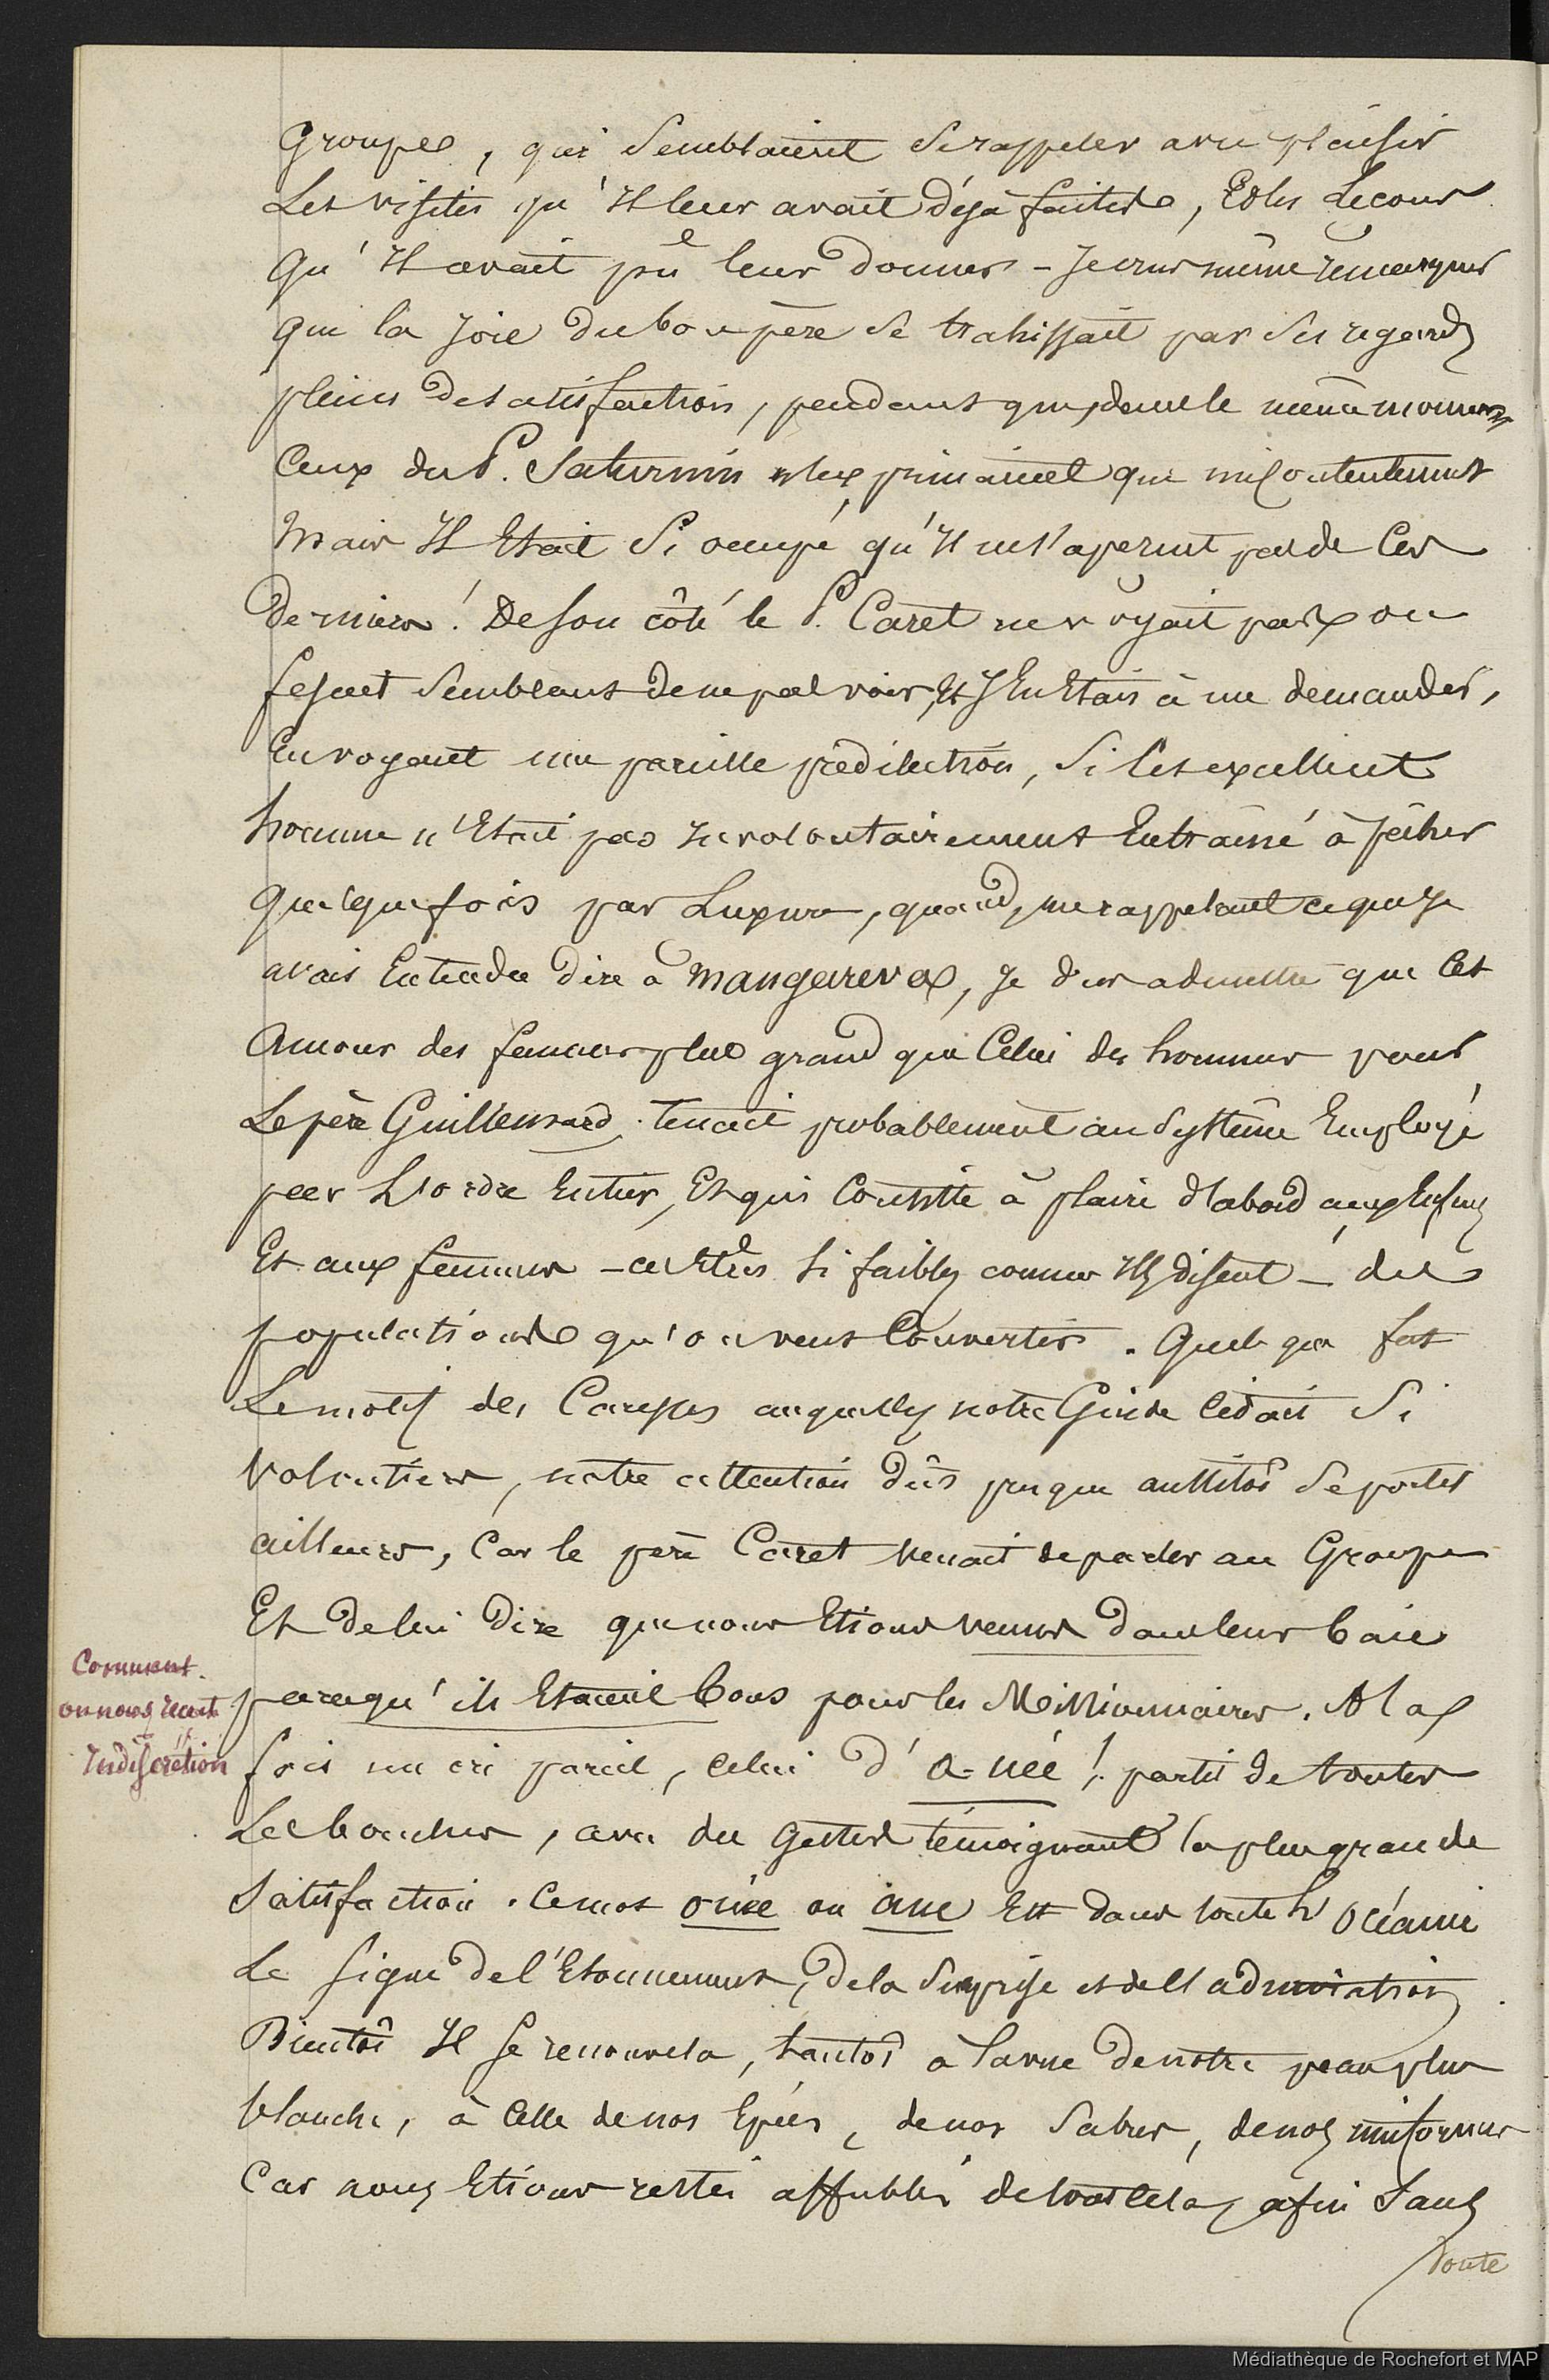 Groupes, qui Semblaient Se rappeler avec plaisir
Les visites qu'Il leur avait déja faites, Et les Lecons
Qu'Il avait pû leur donner - Je crus même remarquer
que la Joie du bon père Se trahissait par Ses regards
pleins de Satisfaction, pendant que, dans le même moment
Ceux du P. Saturnin n'exprimaient que mécontentement
Mais Il Etait Si occupé qu'Il ne s'aperçut pas de Ces
Derniers! De son côté le P. Caret ne voyait pas ou
fesait Semblant de ne pas voir, Et J'En Etais à me demander,
En voyant une pareille prédilection, Si Cet excellent
homme n'Etait pas Involontairement Entrainé à pécher
Quelquefois par Luxure, quand, me rappelant ce que Je
avais Entendu dire à Mangareva, Je dus admettre que Cet
Amour des femmes plus grand que Celui des hommes pour
Le père Guillemard, tenait probablement au Système Employé
par L'ordre Entier, Et qui Consiste à plaire d'abord aux Enfans
Et aux femmes - ces Etres Si faibles comme Ils disent - des
populations qu'on veut Convertir. Quel que fut
Le motif des Caresses auxquelles notre Guide Cédait Si
Volontiers, notre attention dûs presque aussitôt Se porter
ailleurs, Car le père Caret Venait de parler au Groupe
Et de lui Dire que nous Etions venus dans leur baie
parcequ'ils Etaient bons pour les Missionnaires. A la
fois un cri pareil, Celui d'a-uée! partit de toutes
Les bouches, avec des Gestes témoignant la plus grande
Satisfaction. Ce mot ouée ou aue Est dans toute L'océanie
Le Signe de l'Etonnement, de la Surprise et de l'admiration
Bientôt Il Se renouvela, tantôt à la vue de notre peau plus
blanche, à Celle de nos Epées, de nos Sabres, de nos uniformes
Car nous Etions restés affublés de tout Cela, afin Sans
Doute
Comment
on nous recoit
Indiscrétion
Médiathèque de Rochefort et MAP